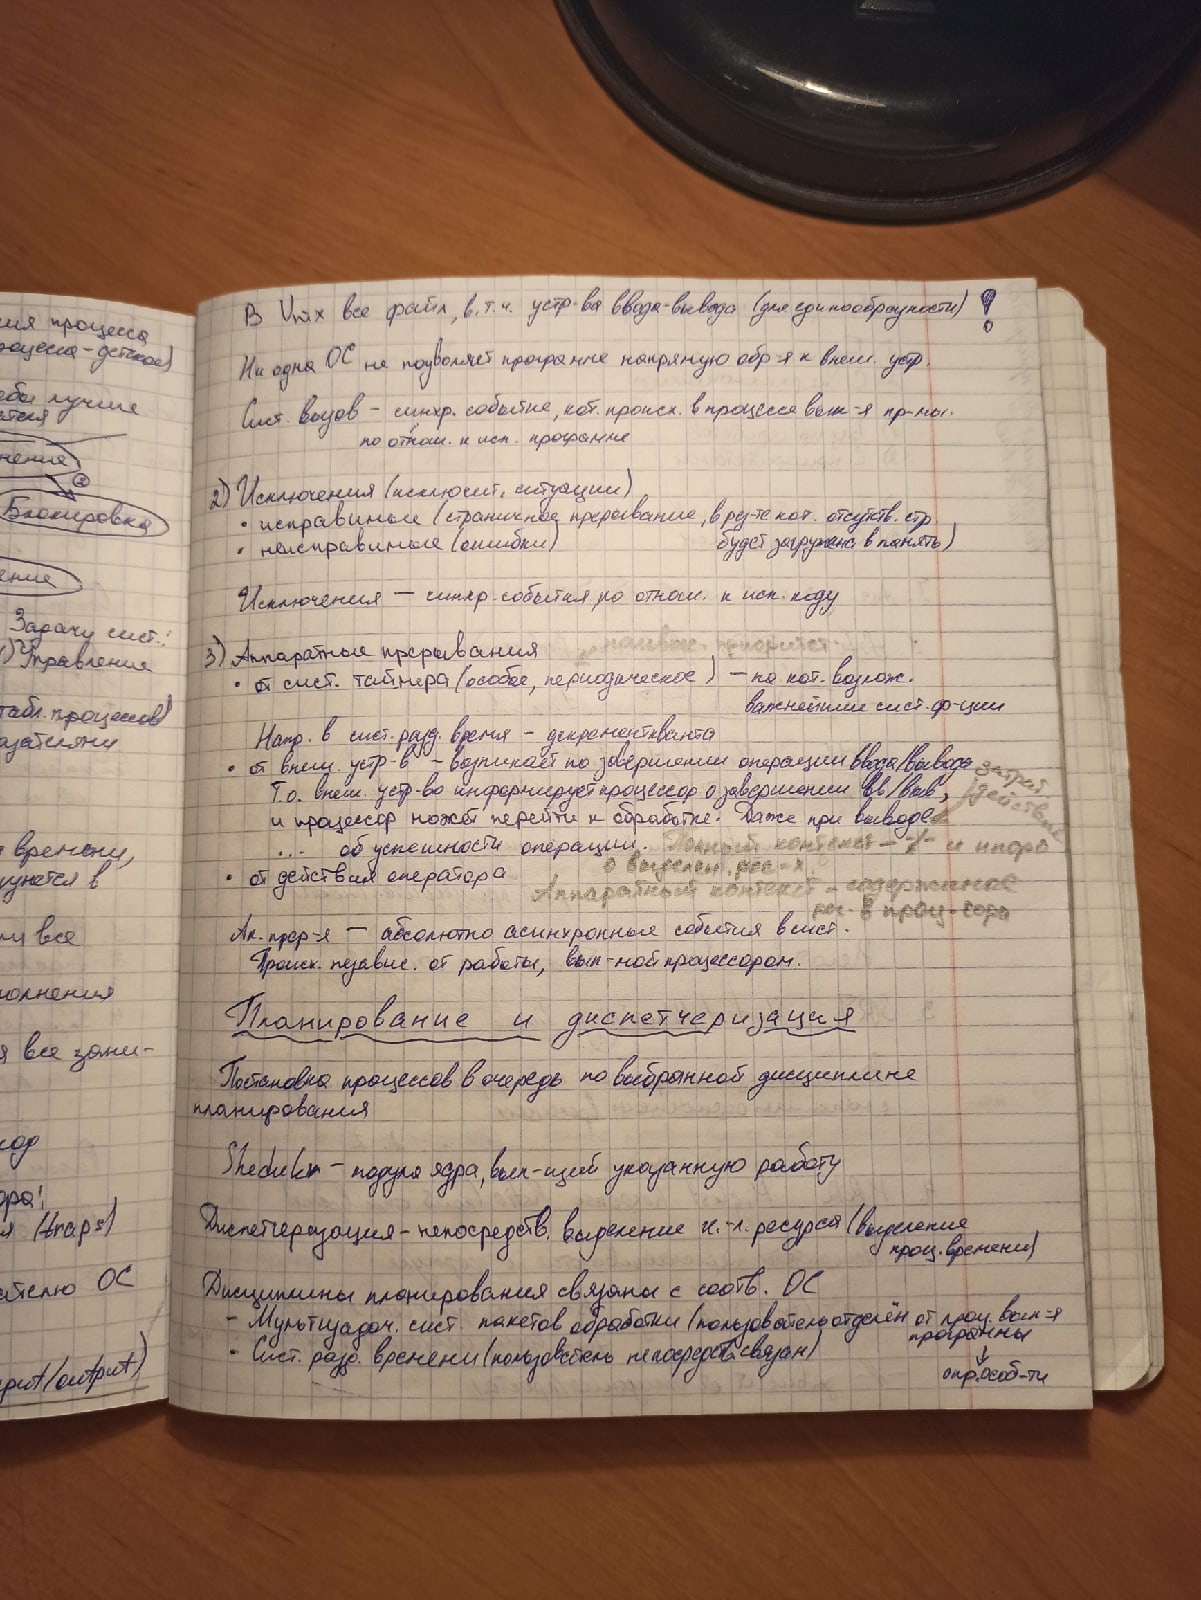 ния процесса
роцесса - детское)
ебы лучше
ается
нение
②
Блокировка
ение
Задачи сист.:
1) Управление
табл. процессов)
азателями
времени,
и все
полнения
я все зани-
код
дра!
я (traps)
ателю ОС
nput/output)
В Unix все файл, в.т.ч. устр-ва ввода-вывода (для единообразности) !
Ни одна ОС не позволяет программе напрямую обр-я к внеш. устр.
Сист. вызов - синхр. событие, кот. происх. в процессе вып-я пр-мы.
по отнош. к исп. программе
2) Исключения (исключит. ситуации)
• исправимые (страничное прерывание, в рез-те кот. отсутств. стр.
будет загружена в память)
• неисправимые (ошибки)
Исключения — синхр. события по отнош. к исп. коду
наивыс. приоритет.
3) Аппаратные прерывания
• от сист. таймера (особое, периодическое) — на кот. возлож.
важнейшие сист. ф-ции
Напр. в сист. разд. время - декремент кванта
• от внеш. устр-в - возникает по завершении операции ввода/вывода
Т.о. внеш. устр-во информирует процессор о завершении вв/выв,
и процессор может перейти к обработке. Даже при выводе
... об успешности операции. Полный контекст - -//- и инфа
о выделен. рес-х
• от действия оператора
Аппаратный контекст - содержимое
рег-в проц-сора
Ап. прер-я — абсолютно асинхронные события в сист.
Происх. независ. от работы, вып-мой процессором.
Планирование и диспетчеризация
Постановка процессов в очередь по выбранной дисциплине
планирования
Sheduler - модуль ядра, вып-щий указанную работу
Диспетчеризация - непосредств. выделение к.-л. ресурса (выделение
проц. времени)
Дисциплины планирования связаны с соотв. ОС
- Мультизадач. сист. пакетов обработки (пользователь отделён от проц. вып-я
программы
• Сист. разд. времени (пользователь непосредств. связан)
↓
опр. особ-ти